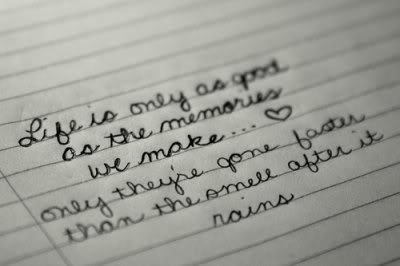 Life is only as good
as the memories
we make... ♡
only they're gone faster
than the smell after it
rains